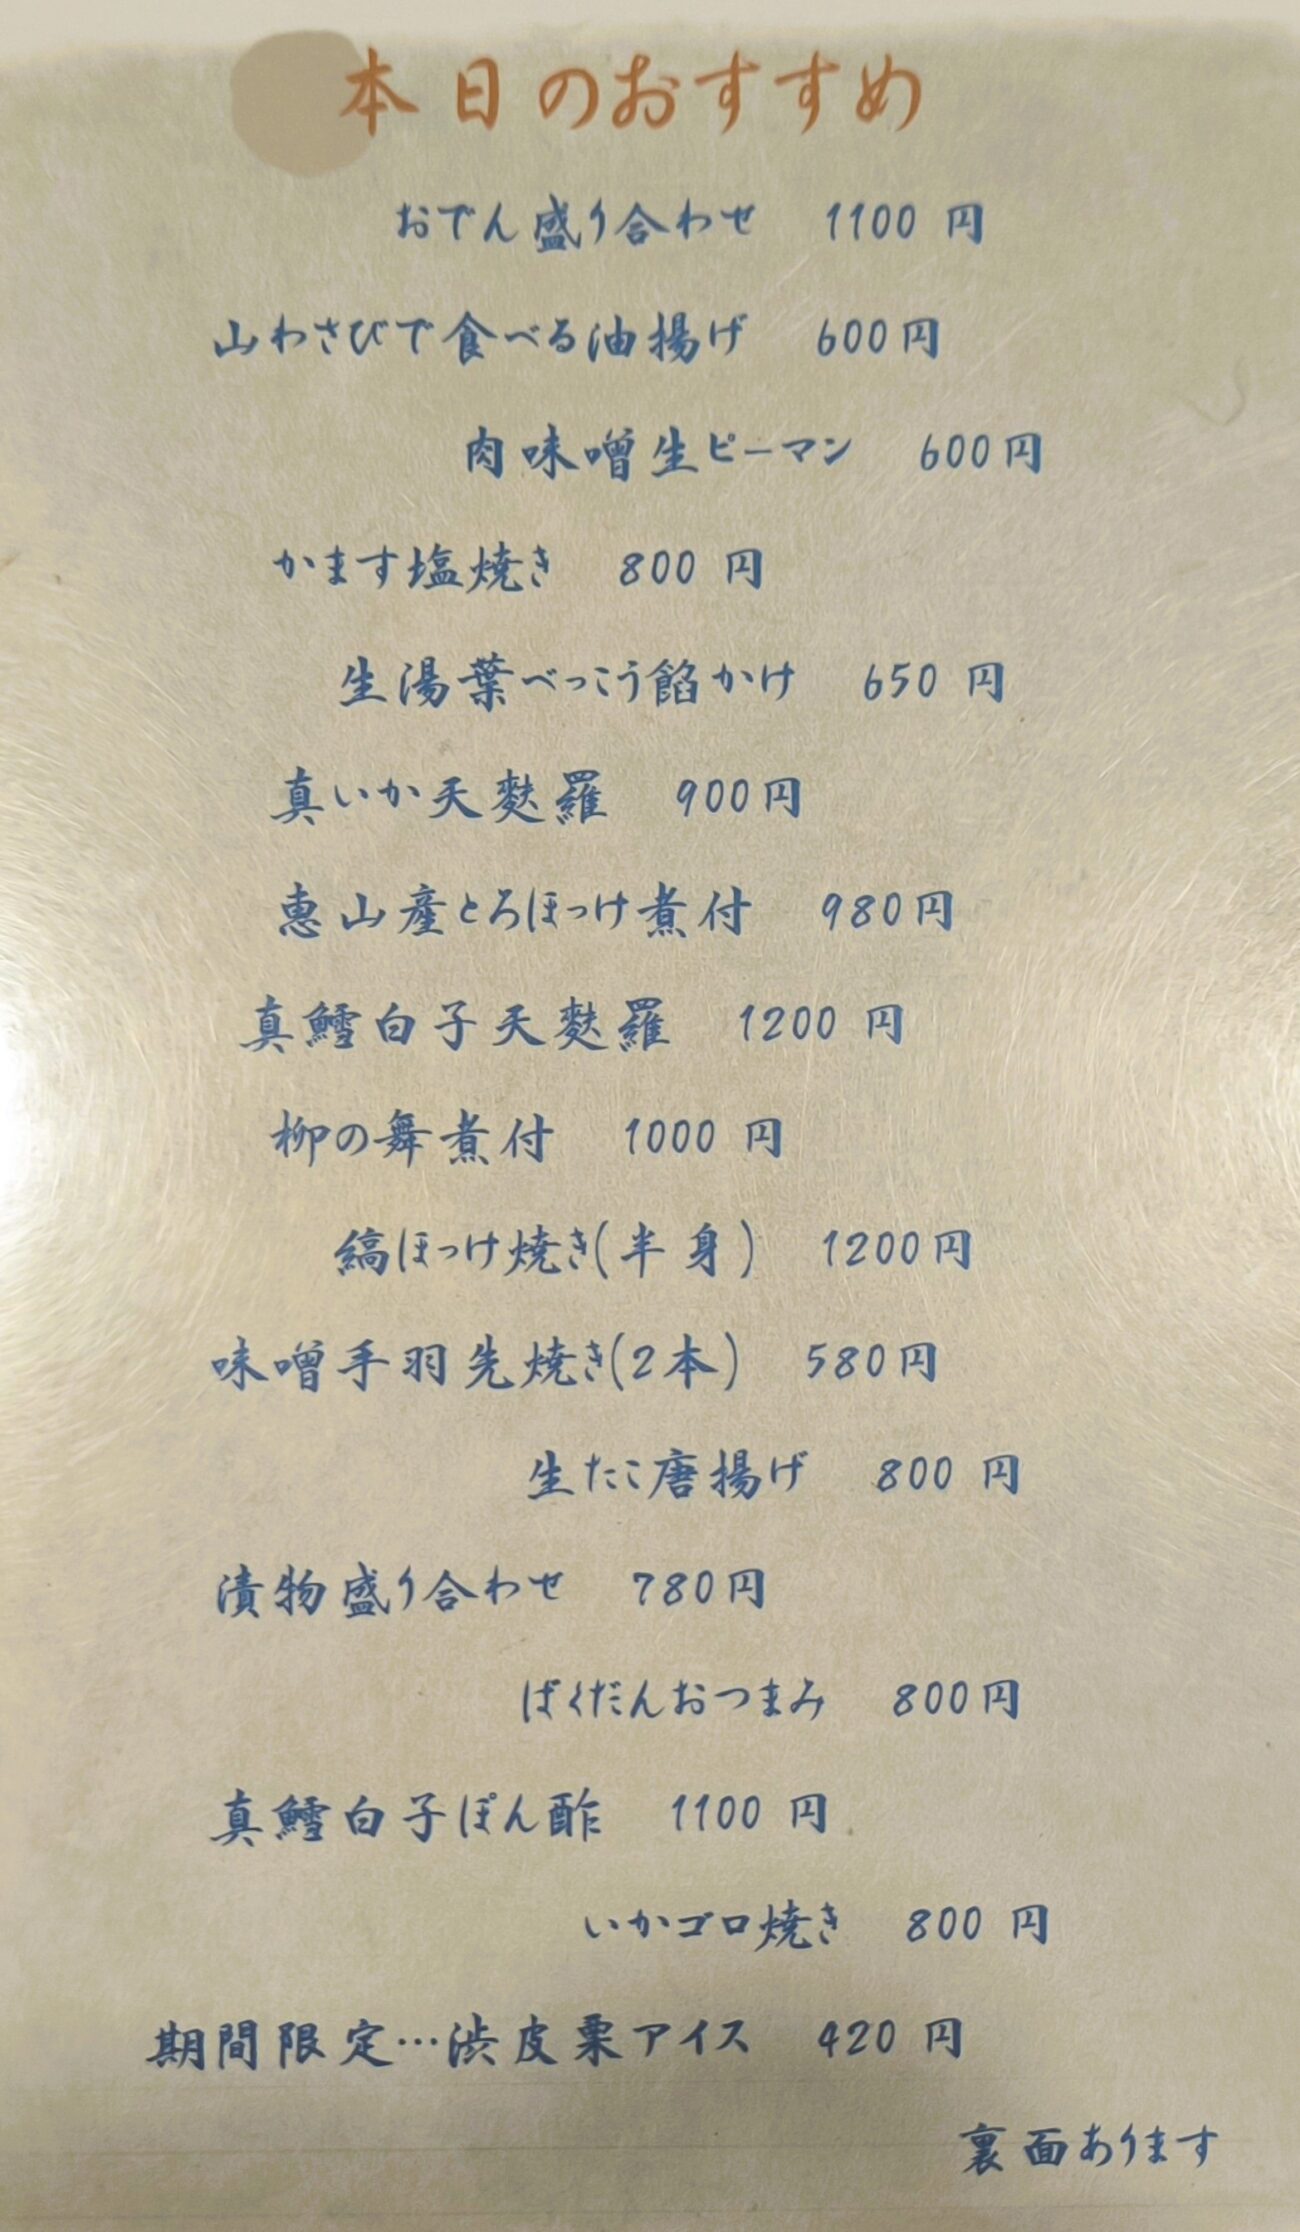 本日のおすすめ
おでん盛り合わせ 1100 円
山わさびで食べる油揚げ 600円
肉味噌生ピーマン 600円
かます塩焼き 800 円
生湯葉べっこう餡かけ 650 円
真いか天麩羅 900円
恵山産とろほっけ煮付 980円
真鱈白子天麩羅 1200 円
柳の舞煮付 1000 円
縞ほっけ焼き(半身) 1200円
味噌手羽先焼き(2本) 580円
生たこ唐揚げ 800 円
漬物盛り合わせ 780円
ばくだんおつまみ 800円
真鱈白子ぽん酢 1100 円
いかゴロ焼き 800 円
期間限定…渋皮栗アイス 420 円
裏面あります